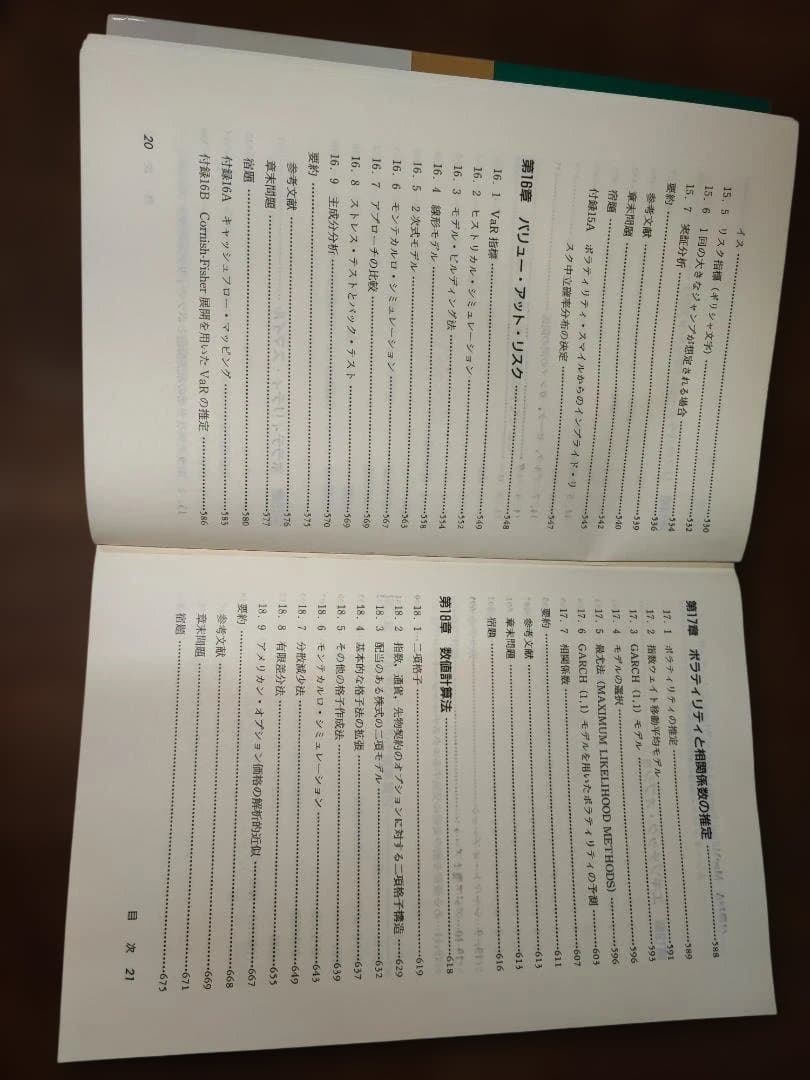 イス
15.5 リスク指標(ギリシャ文字)……530
15.6 1回の大きなジャンプが想定される場合……532
15.7 実証分析……534
要約……536
参考文献……539
章末問題……540
宿題……542
付録15A ボラティリティ・スマイルからのインプライド・リ
スク中立確率分布の決定……545
第16章 バリュー・アット・リスク……547
16.1 VaR指標……548
16.2 ヒストリカル・シミュレーション……549
16.3 モデル・ビルディング法……552
16.4 線形モデル……554
16.5 2次式モデル……558
16.6 モンテカルロ・シミュレーション……563
16.7 アプローチの比較……567
16.8 ストレス・テストとバック・テスト……569
16.9 主成分分析……569
要約……570
参考文献……575
章末問題……576
宿題……577
付録16A キャッシュフロー・マッピング……580
付録16B Cornish-Fisher 展開を用いた VaR の推定……583
……586
20
第17章 ボラティリティと相関係数の推定……588
17.1 ボラティリティの推定……589
17.2 指数ウェイト移動平均モデル……591
17.3 GARCH (1,1) モデル……593
17.4 モデルの選択……596
17.5 最尤法 (MAXIMUM LIKELIHOOD METHODS)……596
17.6 GARCH (1,1) モデルを用いたボラティリティの予測……603
17.7 相関係数……607
要約……611
参考文献……613
章末問題……613
宿題……616
第18章 数値計算法……618
18.1 二項格子……619
18.2 指数、通貨、先物契約のオプションに対する二項格子構造……629
18.3 配当のある株式の二項モデル……632
18.4 基本的な格子法の拡張……637
18.5 その他の格子作成法……639
18.6 モンテカルロ・シミュレーション……643
18.7 分散減少法……649
18.8 有限差分法……655
18.9 アメリカン・オプション価格の解析的近似……667
要約……668
参考文献……669
章末問題……671
宿題……675
目 次 21